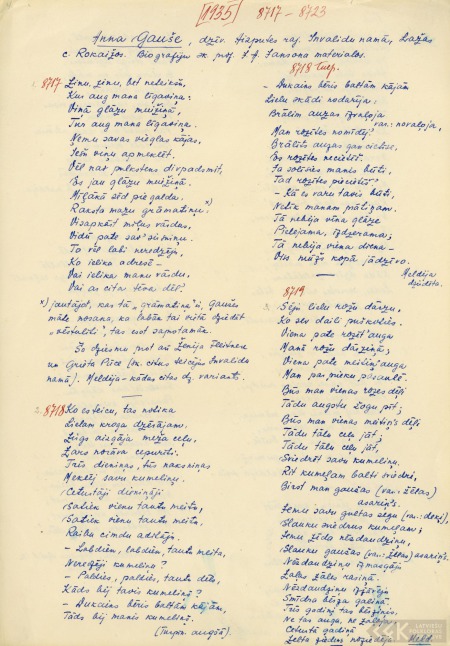 [1935] 8717 - 8723
Anna Gauše, dzīv. Aizputes raj. Invalīdu namā, Lažas
c. Rokaižos. Biogrāfijas sk. prof. J. A. Jansona materialos.
1. 8717 Zinu, zinu, bet neteikšu,
Kur aug mana līgaviņa:
Viņā glāžu muižiņā,
Tur aug mana līgaviņa.
Ņemu savas vieglas kājas,
Iešu viņu apmeklēt.
Vēl nav pulkstens divpadsmit,
Es jau glāžu muižiņā.
Mīļākā sēd pie galda.
Raksta mazu grāmatiņu x)
Visapkārt mīļus vārdus,
Vidū pate sav'
To vēl labi neredzēju,
Ko ielika adresē -
Vai ielika manu vārdu,
Vai ar cita tēva dēl?
x) jautājot, kas tā „grāmatiņa" ir, Gauše
māte nosaka, ka labāk tai vietā dziedēt
tas esot saprotamāk.
Šo dziesmu prot arī Ženija Fleišmane
un Grieta Pūce (sk. citus teicējus Invalīdu
namā). Meldija - kādas citas dz. variants.
2. 8718 Ko es teicu, tas notika
Lielam kroga dzērājam.
Zirgs aizgāja meža ceļu,
Zars norāva cepurīti.
Trīs dieniņas, trīs naksniņas
Meklēj savu kumeliņu.
Ceturtāji dieniņāji
Satiek vienu tautu meitu,
Satiek vienu tautu meitu,
Raibu cimdu adītāju.
- Labdien, labdien, tautu meita,
Neredzēji kumeliņa?
- Paldies, paldies, tautu dēls,
Kāds bij tavis kumeliņis?
- Dukains bēris baltām kājām,
Tāds bij manis kumeliņis.
(Turpin. augšā).
8718 turp.
- Dukains bēris baltām kājām
Lielu skādi nodarīja:
Brālim auzas izvaļoja, var.: novaļoja,
Man rozītes nomīdīj?
Brālītis auzas gan cietīse,
Es rozītes necietīš.
Ja solīsies manis būti,
Tad rozītes piecietīš?
- Kā es varu tavis būti,
Netik manam prātiņam.
Tā nebija vīna glāze
Pielejama, izdzerama;
Tā nebija viena diena -
Viss mūžs kopā jādzīvo.
Meldija
dziedāta.
8719
3. Sēju lielu rožu dārzu,
Ko sev daiļi puškoties.
Viena pate rozīt' auga
Manā rožu dārziņā,
Viena pate meitiņ' auga
Man pa prieku pasaulē.
Būs man vienas rozes dēļ
Tādu augstu žogu pīt;
Būs man vienas meitiņ's dēļ
Tādu tālu ceļu jāt;
Tādu tālu ceļu jāt,
Svīdrēt savu kumeliņu.
Rit kumeļam balti sviedri,
Birst man gaužas (var.: žēlas)
asariņ's.
Ņemu savu gultas segu (var.: deķi),
Slauku sviedrus kumeļam;
Ņemu zīda nēzdaudziņu,
Slauku gaužas (var.: žēlas) asariņ's.
Nēzdaudziņu izmazgāju
Zaļas zāles rasiņā.
Nēzdaudziņu izžāvēju
Smīdra bērza galiņā.
Trīs godiņi tas bērziņis,
Ne tas auga, ne zaļoja;
Ceturtā gadiņā
Zelta ziedus noziedēja